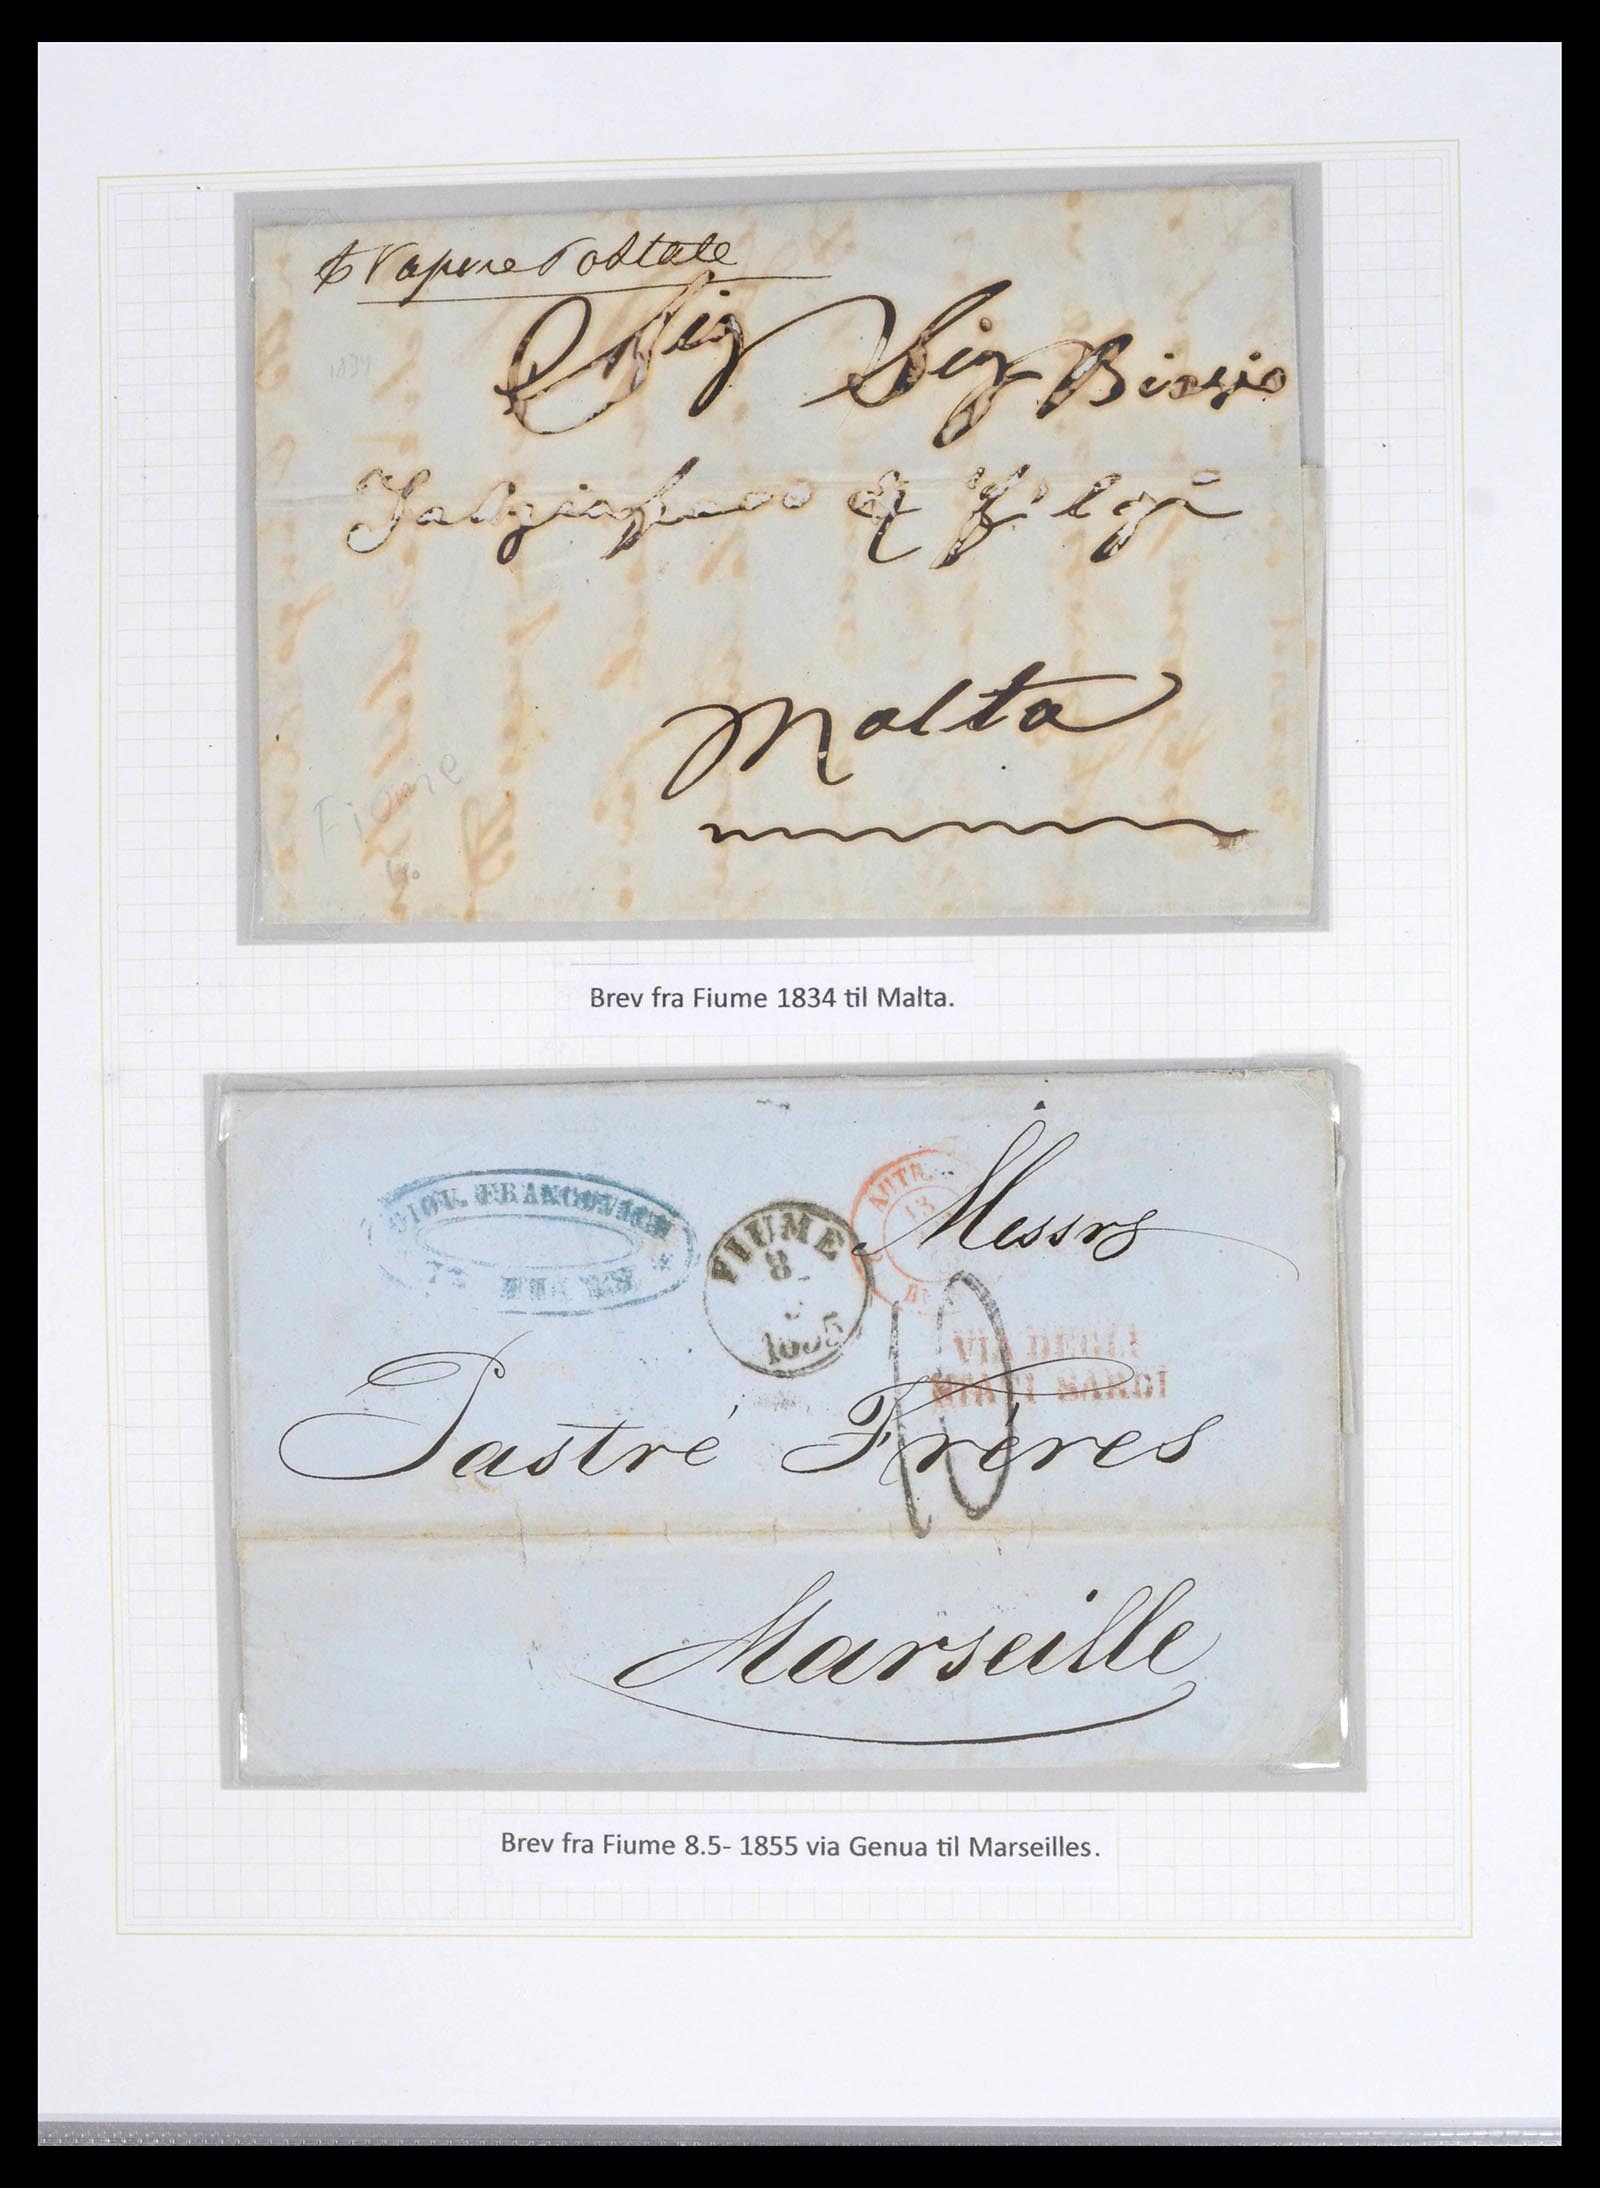 Vapore Postale
Sig Sig Biagio
1834
& Figli
Malta
Fiume
Brev fra Fiume 1834 til Malta.
GIOV. FRANCOVICH
FIUME
FIUME
8
5
1855
AUTR.
13
Messrs
10
VIA DEGLI
STATI SARDI
Pastré Frères
Marseille
Brev fra Fiume 8.5- 1855 via Genua til Marseilles.